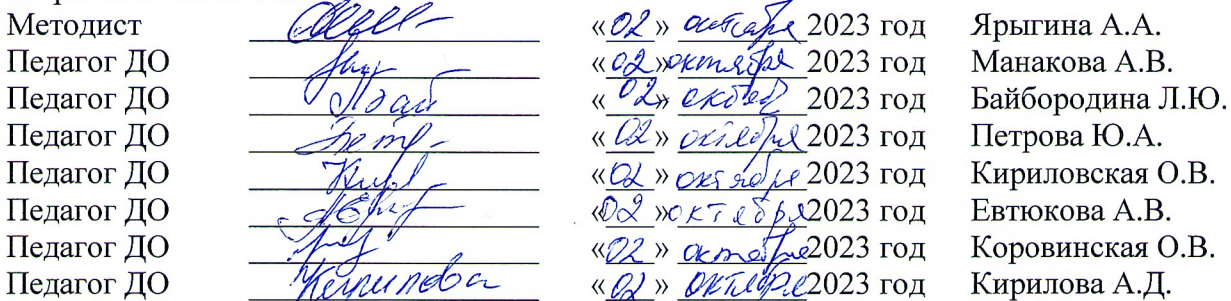 Методист «02» октября 2023 год Ярыгина А.А.
Педагог ДО «02» октября 2023 год Манакова А.В.
Педагог ДО «02» 2023 год Байбородина Л.Ю.
Педагог ДО «02» октября 2023 год Петрова Ю.А.
Педагог ДО «02» октября 2023 год Кириловская О.В.
Педагог ДО «02» октября 2023 год Евтюкова А.В.
Педагог ДО «02» октября 2023 год Коровинская О.В.
Педагог ДО Кирилова «02» октября 2023 год Кирилова А.Д.